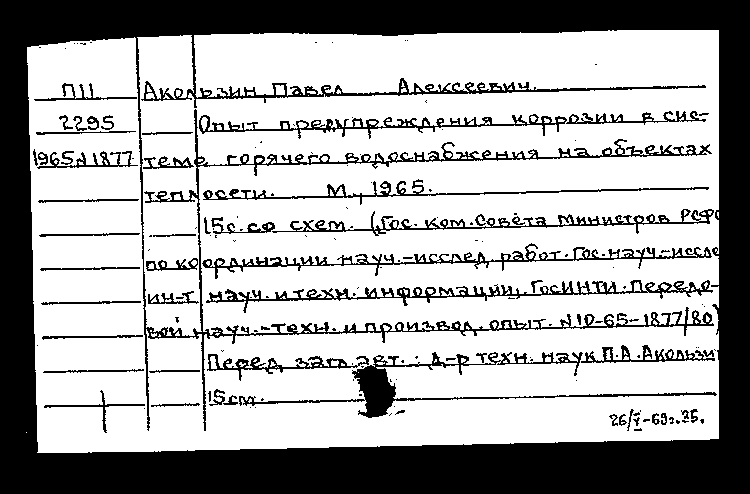 П11 Акользин, Павел Алексеевич.
2295 Опыт предупреждения коррозии в сис-
1965л1877 теме горячего водоснабжения на объектах
теплосети. М., 1965.
15с. со схем. (Гос. ком. Совета Министров РСФС
по координации науч.-исслед. работ. Гос. науч.-иссле
ин-т науч. и техн. информации. ГосИНТИ. Передо-
вой науч.-техн. и производ. опыт. №10-65-1877/80)
Перед загл. авт.: д-р техн. наук П.А. Акользи
15см.
26/V-69г. 35.